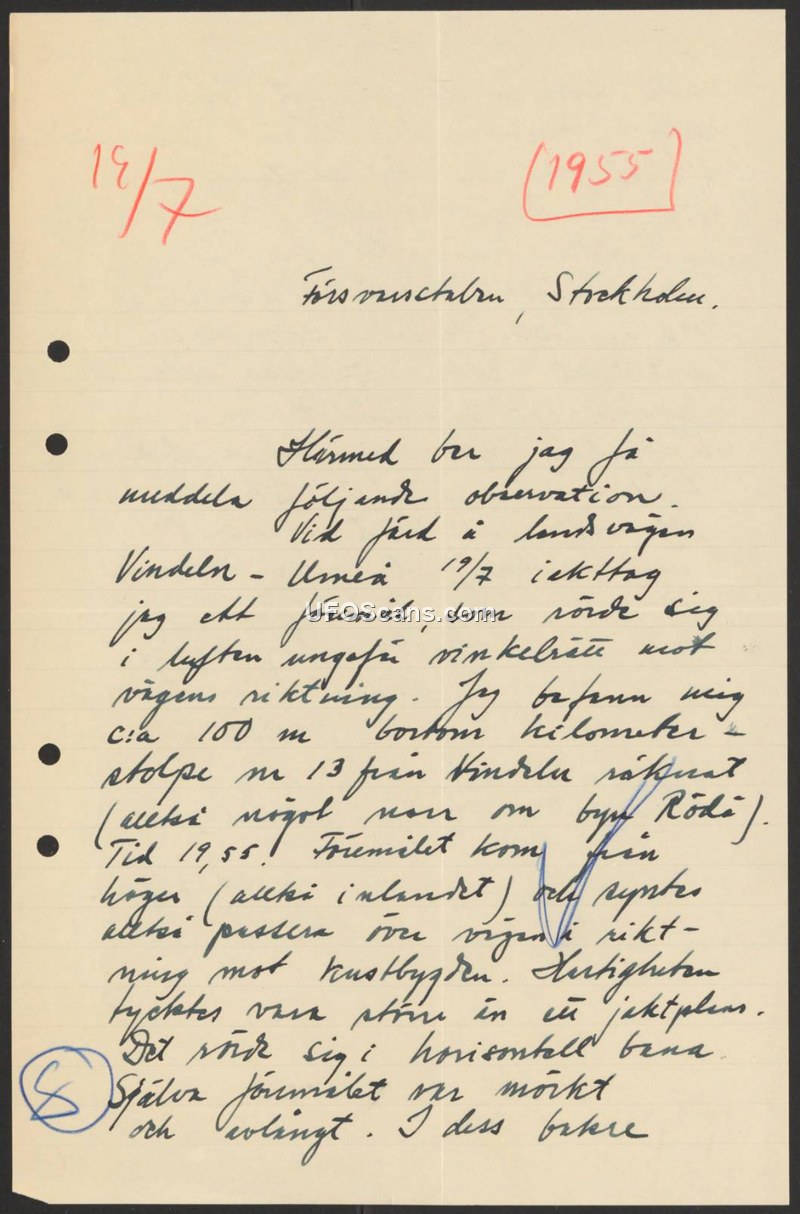 19/7
(1955)
Försvarsstaben, Stockholm.
Härmed ber jag få
meddela följande observation.
Vid färd å landsvägen
Vindeln - Umeå 19/7 iakttog
jag ett föremål, som rörde sig
UFOScans.com
i luften ungefär vinkelrätt mot
vägens riktning. Jag befann mig
c:a 100 m bortom kilometer-
stolpe nr 13 från Vindeln räknat
(alltså något norr om byn Rödå).
Tid 19,55. Föremålet kom från
höger (alltså inlandet) och syntes
alltså passera över vägen i rikt-
ning mot kustbygden. Hastigheten
tycktes vara större än ett jaktplans.
Det rörde sig i horisontell bana.
Själva föremålet var mörkt
och avlångt. I dess bakre